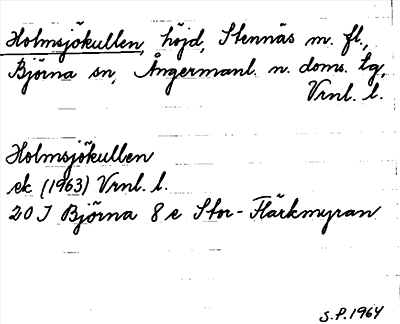 Holmsjökullen, höjd, Stennäs m. fl.,
Björna sn, Ångermanl. n. doms. tg,
Vrnl. l.
Holmsjökullen
ek (1963) Vrnl. l.
20 J Björna 8 e Stor-Flärkmyran
S.P. 1964